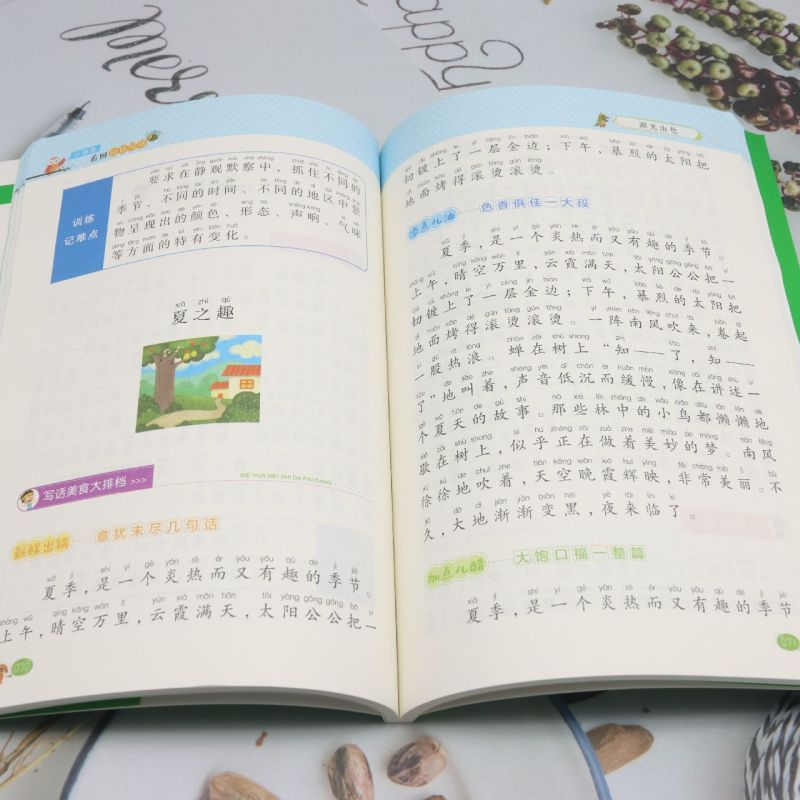 看图
训练
记难点
要求在静观默察中，抓住不同的
季节、不同的时间、不同的地区中景
物呈现出的颜色、形态、声响、气味
等方面的特有变化。
xià zhī qù
夏之趣
写话美食大排档 >>>
XIE HUA MEI SHI DA PAI DANG
新鲜出锅 意犹未尽几句话
夏季，是一个炎热而又有趣的季节。
上午，晴空万里，云霞满天，太阳公公把一
070
湖光山色
切镀上了一层金边；下午，暴烈的太阳把
地面烤得滚烫滚烫。
添点儿油 色香俱佳一大段
夏季，是一个炎热而又有趣的季节。
上午，晴空万里，云霞满天，太阳公公把一
切镀上了一层金边；下午，暴烈的太阳把
地面烤得滚烫滚烫。一阵南风吹来，卷起
一股热浪。蝉在树上“知——了，知——
了”地叫着，声音低沉而缓慢，像在讲述一
个夏天的故事。那些林中的小鸟都懒懒地
歇在树上，似乎正在做着美妙的梦。南风
徐徐地吹着，天空晚霞辉映，非常美丽。不
久，大地渐渐变黑，夜来临了。
加点儿醋 大饱口福一整篇
夏季，是一个炎热而又有趣的季节
071